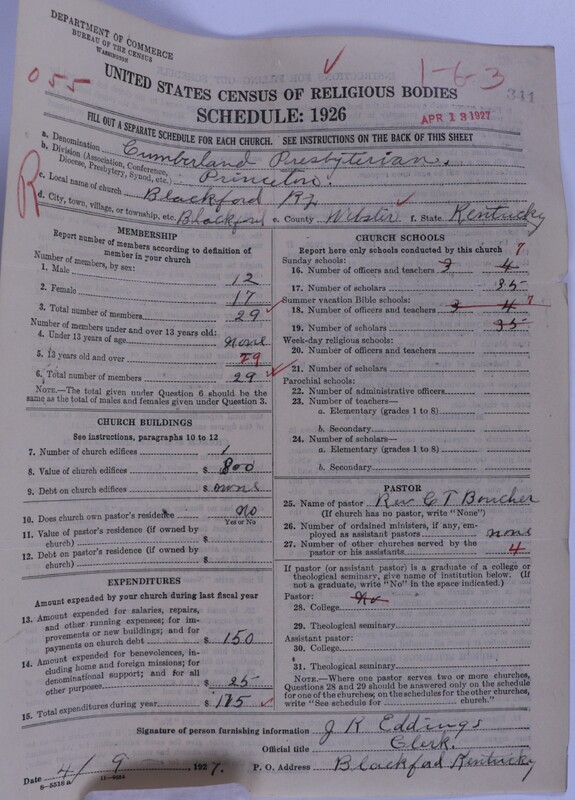 DEPARTMENT OF COMMERCE
BUREAU OF THE CENSUS
WASHINGTON
055
1-6-3
341
UNITED STATES CENSUS OF RELIGIOUS BODIES
SCHEDULE: 1926
APR 13 1927
FILL OUT A SEPARATE SCHEDULE FOR EACH CHURCH. SEE INSTRUCTIONS ON THE BACK OF THIS SHEET
R
a. Denomination Cumberland Presbyterian.
b. Division (Association, Conference,
Diocese, Presbytery, Synod, etc.) Princeton.
c. Local name of church Blackford
d. City, town, village, or township, etc. Blackford e. County Webster f. State Kentucky
MEMBERSHIP
Report number of members according to definition of
member in your church
Number of members, by sex:
1. Male 12
2. Female 17
3. Total number of members 29
Number of members under and over 13 years old:
4. Under 13 years of age none
5. 13 years old and over 29
6. Total number of members 29
NOTE.—The total given under Question 6 should be
the same as the total of males and females given under Question 3.
CHURCH BUILDINGS
See instructions, paragraphs 10 to 12
7. Number of church edifices 1
8. Value of church edifices $ 800
9. Debt on church edifices $
10. Does church own pastor's residence No
Yes or No
11. Value of pastor's residence (if owned by
church) $
12. Debt on pastor's residence (if owned by
church) $
EXPENDITURES
Amount expended by your church during last fiscal year
13. Amount expended for salaries, repairs,
and other running expenses; for im-
provements or new buildings; and for
payments on church debt $ 150
14. Amount expended for benevolences, in-
cluding home and foreign missions; for
denominational support; and for all
other purposes $ 25
15. Total expenditures during year $ 175
CHURCH SCHOOLS
Report here only schools conducted by this church 7
Sunday schools:
16. Number of officers and teachers 3 4
17. Number of scholars 35
Summer vacation Bible schools: 7
18. Number of officers and teachers 3 4
19. Number of scholars 35
Week-day religious schools:
20. Number of officers and teachers
21. Number of scholars
Parochial schools:
22. Number of administrative officers
23. Number of teachers—
a. Elementary (grades 1 to 8)
b. Secondary
24. Number of scholars—
a. Elementary (grades 1 to 8)
b. Secondary
PASTOR
25. Name of pastor Rev C T Boucher
(If church has no pastor, write "None")
26. Number of ordained ministers, if any, em-
ployed as assistant pastors none
27. Number of other churches served by the
pastor or his assistants 4
If pastor (or assistant pastor) is a graduate of a college or
theological seminary, give name of institution below. (If
not a graduate, write "No" in the space indicated.)
Pastor: No
28. College
29. Theological seminary
Assistant pastor:
30. College
31. Theological seminary
NOTE.—Where one pastor serves two or more churches,
Questions 28 and 29 should be answered only on the schedule
for one of the churches; on the schedules for the other churches,
write "See schedule for church."
Signature of person furnishing information J R Eddings
Official title Clerk.
Date 4/9 1927. P. O. Address Blackford Kentucky
8-5318a